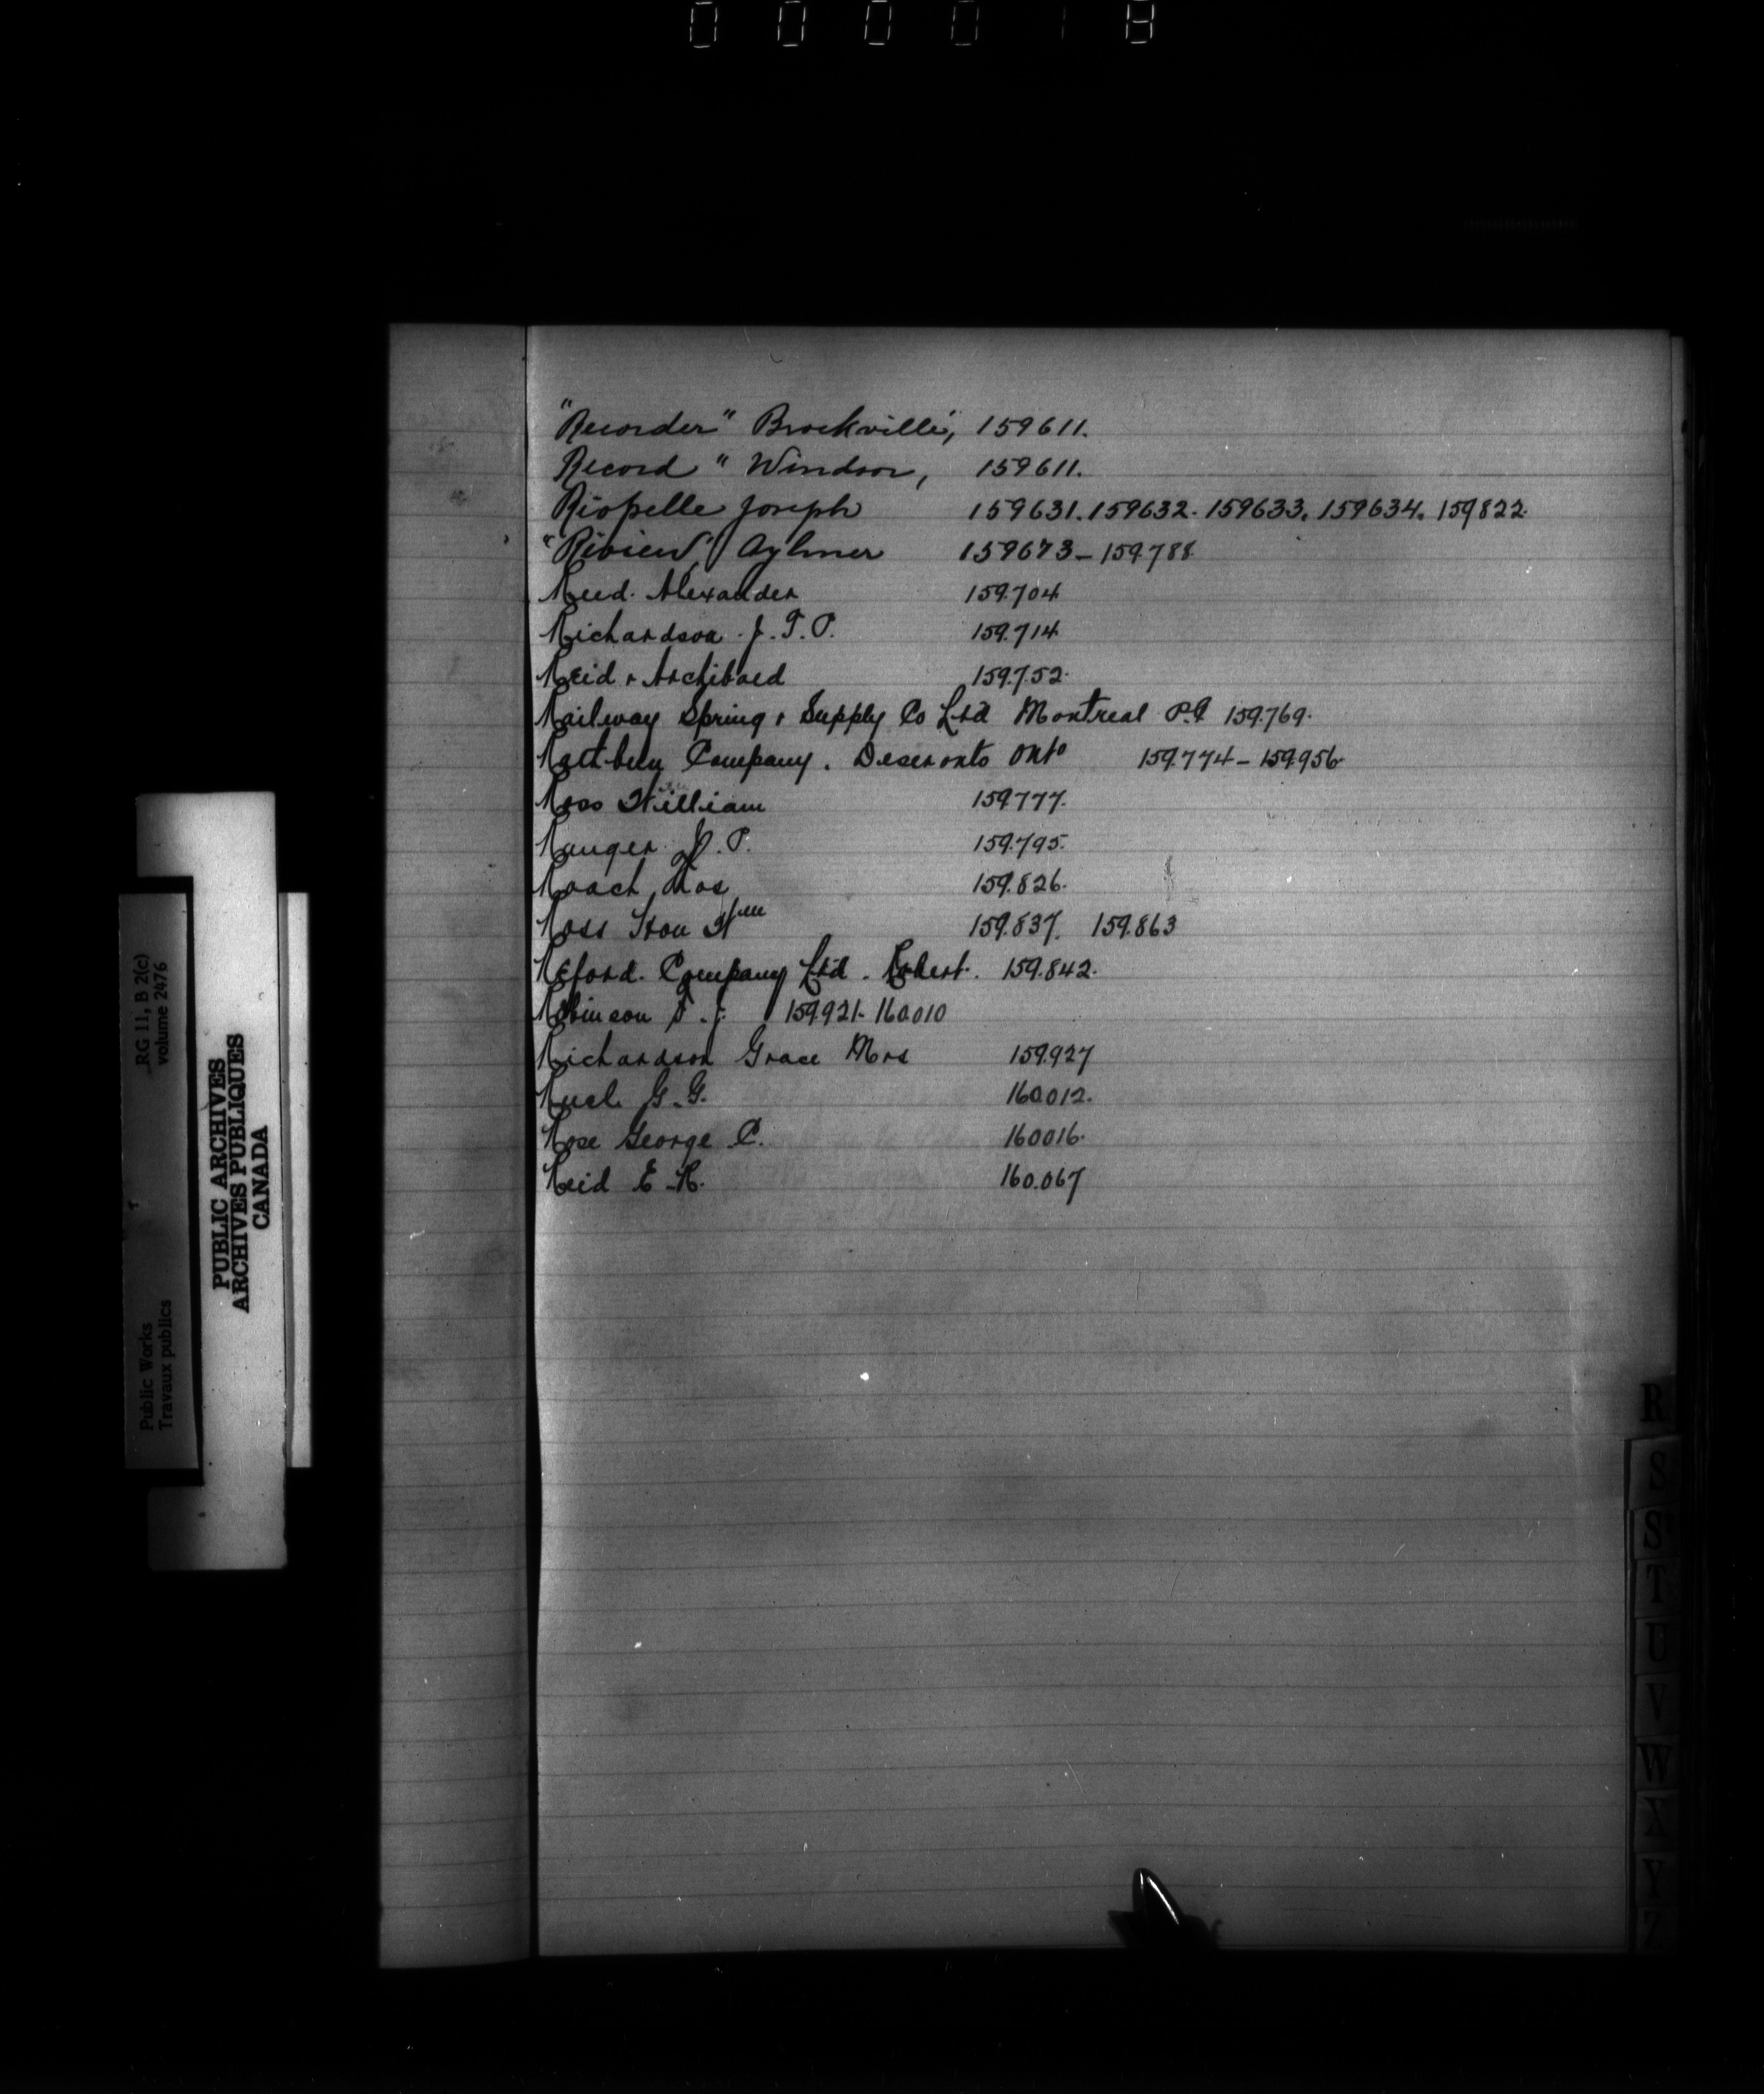 000018
"Recorder" Brockville, 159611.
Record " Windsor, 159611.
Riopelle Joseph 159631. 159632. 159633. 159634. 159822.
"Review" Aylmer 159673 - 159.788
Reed. Alexander 159.704
Richardson. J. T. P. 159.714
Reid & Archibald 159.752.
Railway Spring & Supply Co Ltd Montreal P.Q 159.769.
Rathbun Company. Deseronto Ont° 159.774 - 159.956.
Ross William 159.777.
Ranger J. P. 159.795.
Roach 159.826.
Ross Hon Wm 159.837. 159.863
Reford. Company Ltd. Robert. 159.842.
Robinson T. J. 159.921 - 160.010
Richardson Grace Mrs 159.927
G. G. 160.012.
Rose George C. 160016.
Reid E. R. 160.067
RG 11, B 2(c)
volume 2476
Public Works
Travaux publics
PUBLIC ARCHIVES
ARCHIVES PUBLIQUES
CANADA
R
S
S
T
U
V
W
X
Y
Z